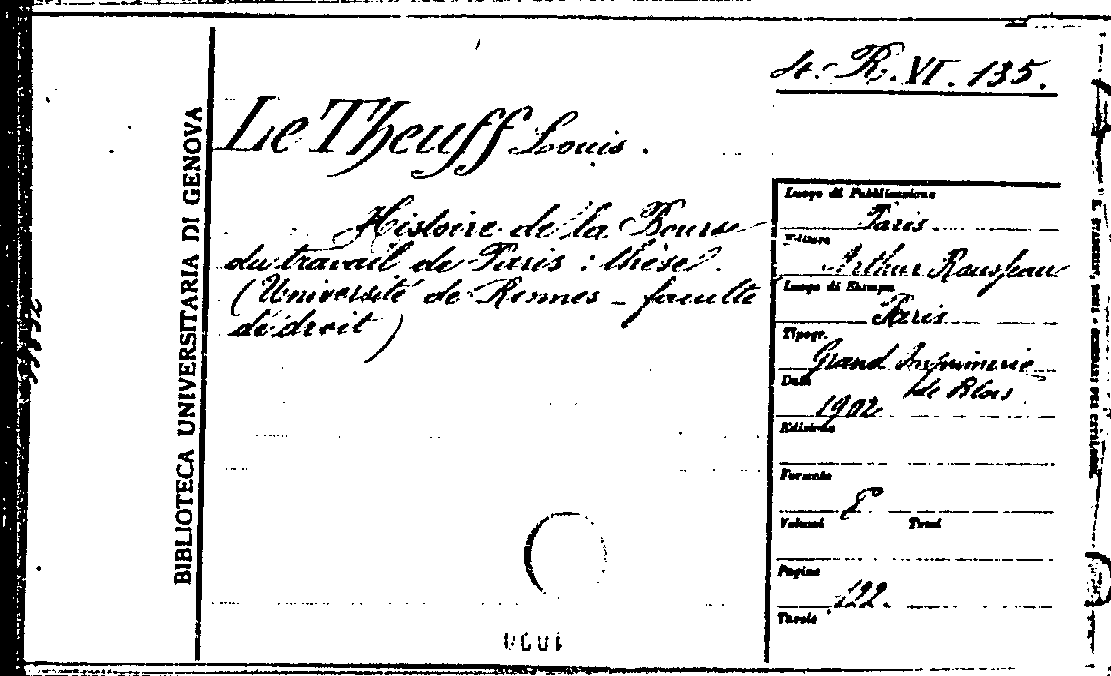 4. R. VI. 135.
Le Theuff Louis.
Histoire de la Bourse
du travail de Paris : thèse.
(Université de Rennes - faculté
de droit)
BIBLIOTECA UNIVERSITARIA DI GENOVA
Luogo di Pubblicazione
Paris
Editore
Arthur Rousseau
Luogo di Stampa
Paris
Tipogr.
Grand Imprimerie
de Blois
Data
1902
Edizione
Formato
8°
Volumi Tomi
Pagine
122.
Tavole